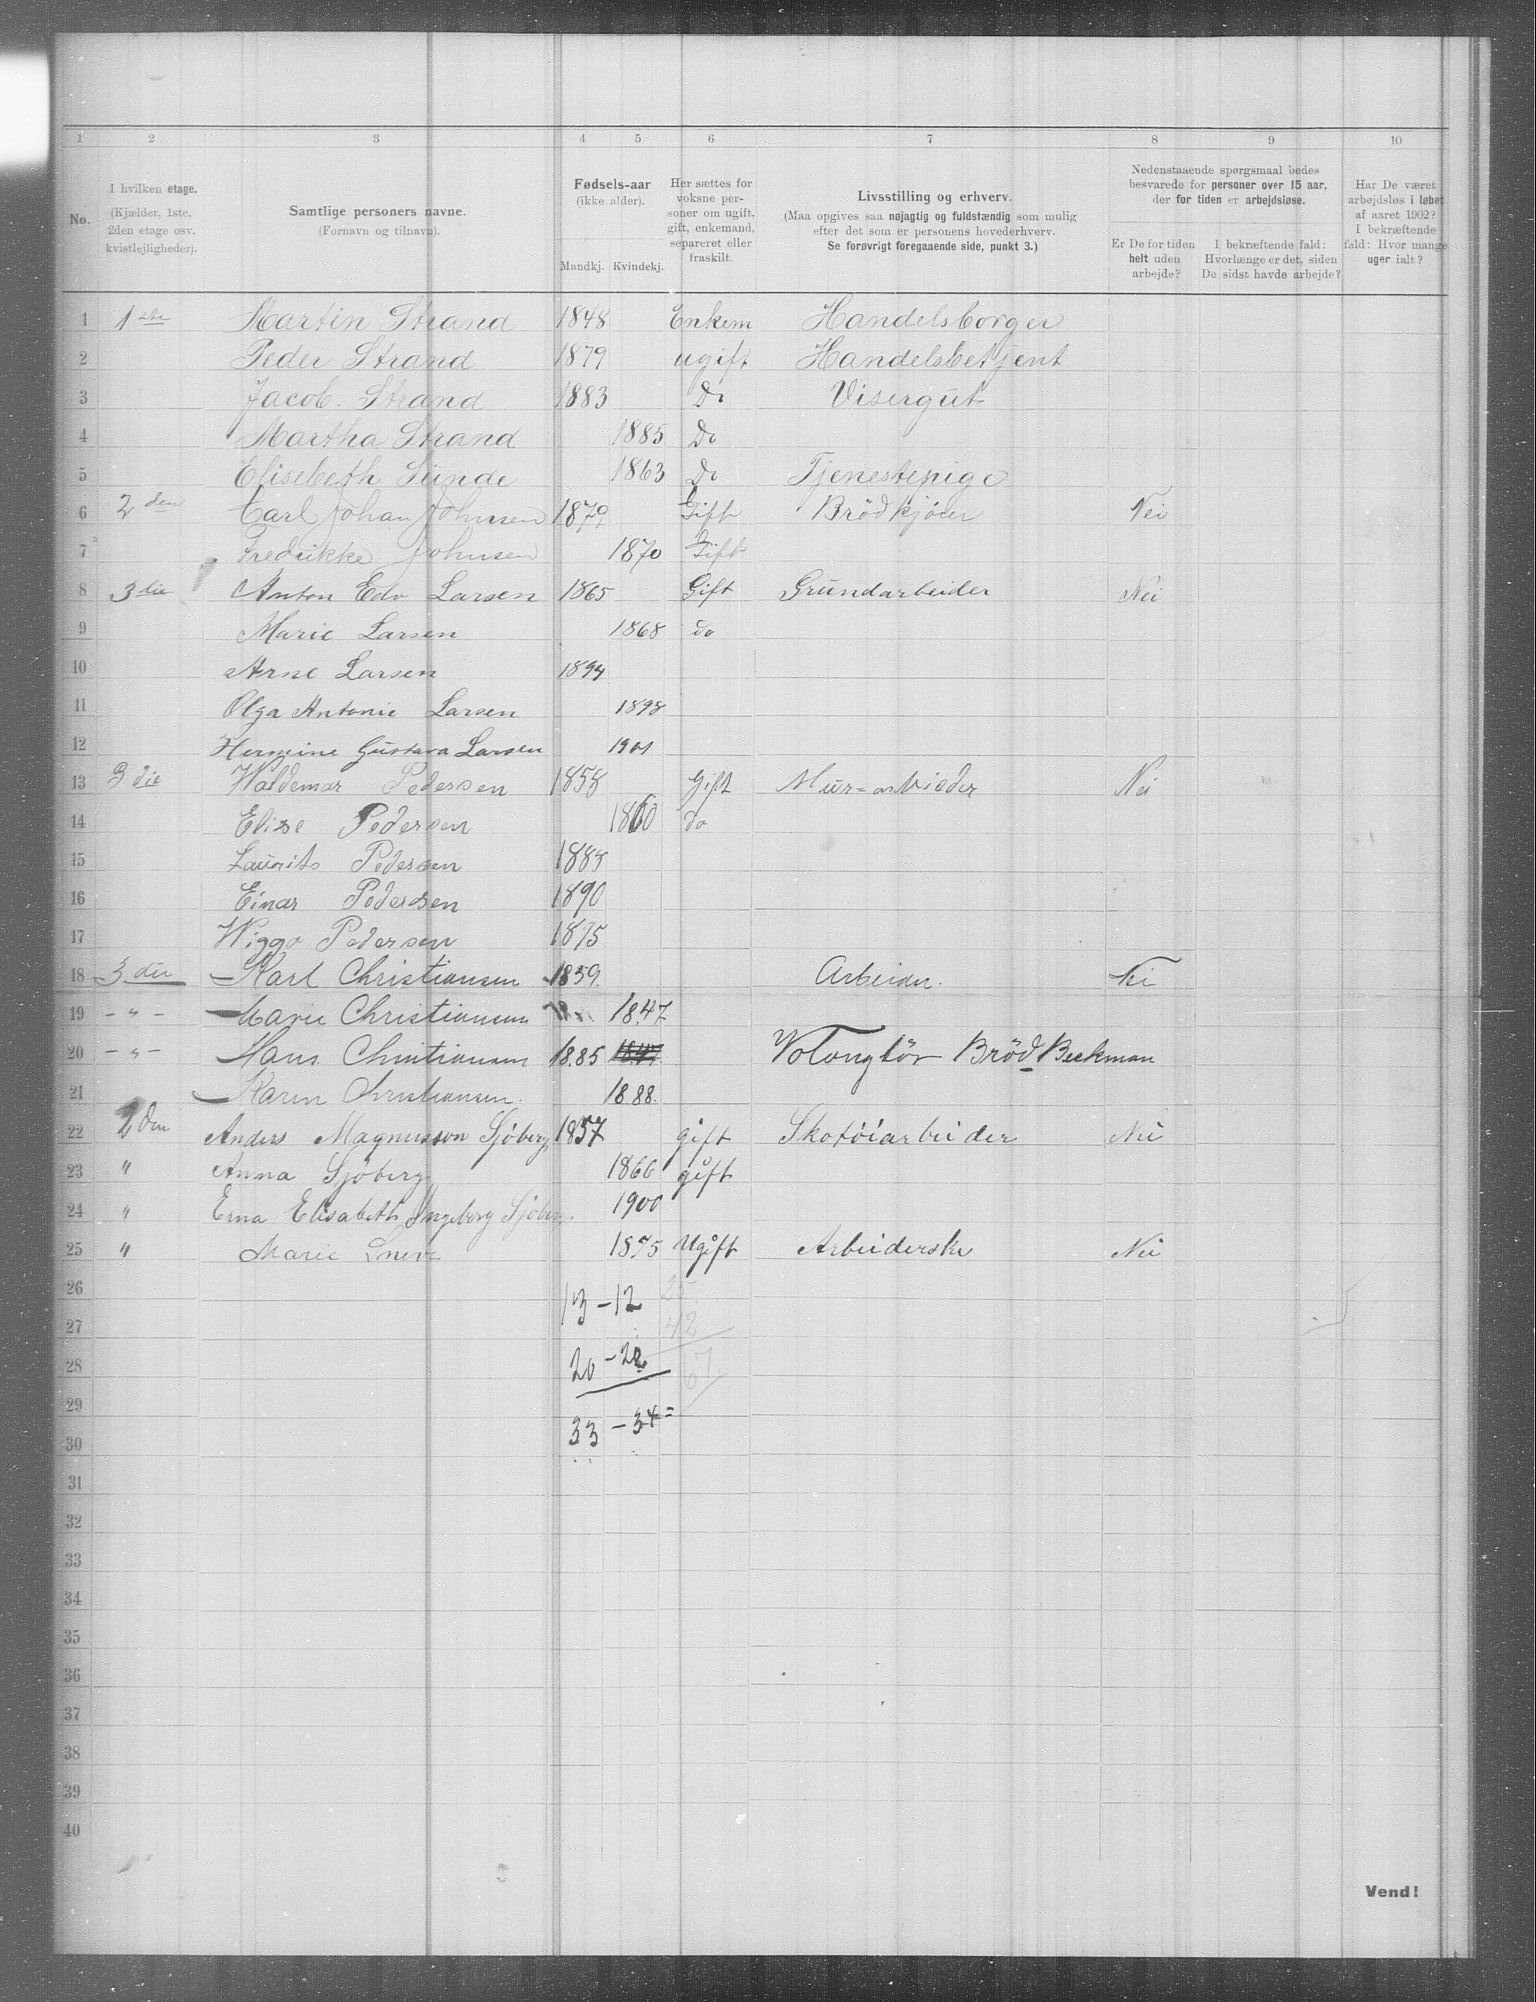 1 2 3 4 5 6 7 8 9 10
No.
I hvilken etage. (Kjælder, 1ste, 2den etage osv. kvistlejligheder).
Samtlige personers navne. (Fornavn og tilnavn).
Fødsels-aar (ikke alder). Mandkj. Kvindekj.
Her sættes for voksne personer om ugift, gift, enkemand, separeret eller fraskilt.
Livsstilling og erhverv. (Maa opgives saa nøjagtig og fuldstændig som mulig efter det som er personens hovederhverv. Se forøvrigt foregaaende side, punkt 3.)
Nedenstaaende spørgsmaal bedes besvarede for personer over 15 aar, der for tiden er arbejdsløse.
Er De for tiden helt uden arbejde?
I bekræftende fald: Hvorlænge er det, siden De sidst havde arbejde?
Har De været arbejdsløs i løbet af aaret 1902? I bekræftende fald: Hvor mange uger ialt?
1 1ste Martin Strand 1848 Enkem Handelsborger
2 Peder Strand 1879 ugift Handelsbetjent
3 Jacob. Strand 1883 Do Visergut
4 Martha Strand 1885 Do
5 Elisebeth Sünde 1863 Do Tjenestepige
6 2den Carl Johan Johnsen 1879 Gift Brödkjörer Nei
7 Fredrikke Johnsen 1870 Gift
8 3die Anton Edv Larsen 1865 Gift Grundarbeider Nei
9 Marie Larsen 1868 do
10 Arne Larsen 1894
11 Olga Antonie Larsen 1898
12 Hermine Gustava Larsen 1901
13 3die Waldemar Pedersen 1858 Gift Mur=arbieder Nei
14 Elise Pedersen 1860 do
15 Laurits Pedersen 1888
16 Einar Pedersen 1890
17 Wiggo Pedersen 1895
18 3die Karl Christiansen 1859. Arbeider. Nei
19 - " - Marie Christiansen 1847
20 - " - Hans Christiansen 1885 1847 Brød Beckman
21 Karen Christiansen. 1888.
22 2den Anders Magnusson Sjöberg 1857 gift Skotöiarbeider Nei
23 " Anna Sjöberg 1866 gift
24 " Erna Elisabeth Ingeborg Sjöberg 1900
25 " Marie 1875 Ugift Arbeiderske Nei
26 13 - 12 25
27 42
28 20 - 22 67
29
30 33 - 34 =
31
32
33
34
35
36
37
38
39
40
Vend!